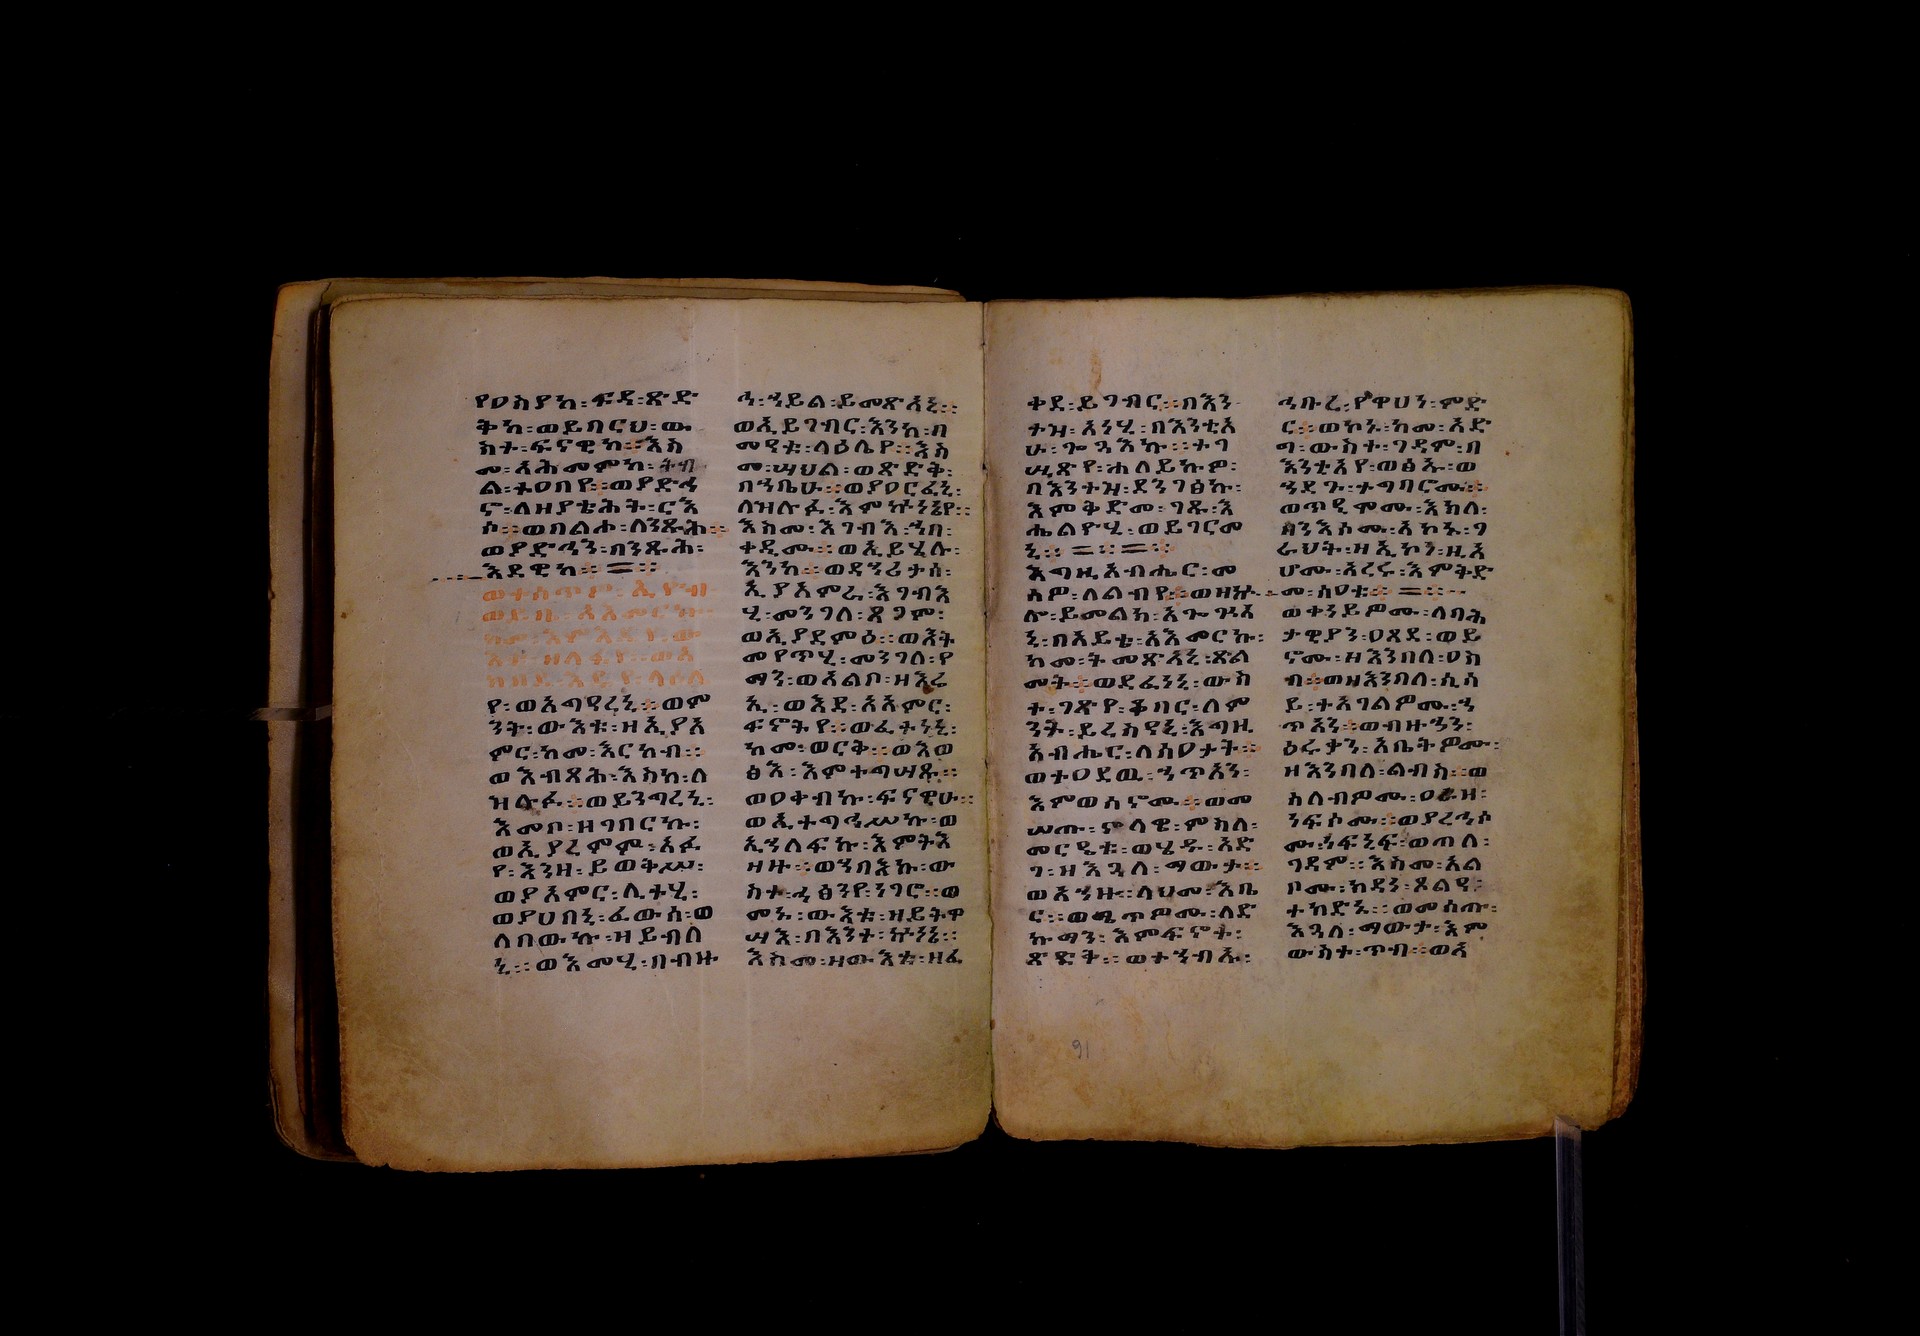 የዐስየከ፡ፍዳ፡ጽድ
ቅከ፡ወይበርህ፡ው
ስተ፡ፍናዊከ፡እስ
መ፡አሕመምከ፡ትብ
ል፡ተዐበየ፡ወያድኅ
ኖ፡ለዘያቴሕት፡ርእ
ሶ፡ወበልሖ፡ለንጹሕ፡
ወያድኅን፡በንጹሕ፡
እደዊከ።
ወተሰጥወ፡ኢዮብ
ወይቤ፡አአመርኩ
ከመ፡እምእዴየ፡ው
እቱ፡ዘለፋየ፡ወእ
እዴየ፡ላዕለ
የ፡ወአግዳረኒ።ወም
ንት፡ውእቱ፡ዘኢያአ
ምር፡ከመ፡እርከብ።
ወእብጻሕ፡እስከ፡ለ
ዝሉፉ።ወይንግረኒ፡
እመቦ፡ዘገበርኩ፡
ወኢያረምም፡አፉ
የ፡እንዘ፡ይወቅሥ፡
ወያአምር፡ሊተሂ፡
ወያሀበኒ፡ፈውሰ፡ወ
ለበውኩ፡ዘይብለ
ኒ።ወእመሂ፡በብዙ
ኅ፡ኀይል፡ይመጽአኒ።
ወኢይገብር፡እንከ፡በ
መዓቱ፡ላዕሌየ።እስ
መ፡ሣህል፡ወጽድቅ፡
በኀቤሁ።ወያዐርፈኒ፡
ለዝሉፉ፡እምኵነኔየ።
እስመ፡እገብእ፡ኀበ፡
ቀዲሙ።ወኢይሄሉ፡
እንከ።ወደኃሪታሰ፡
ኢያአምራ፡እገብእ
ሂ፡መንገለ፡ጸጋም፡
ወኢያደምዕ፡ወእት
መየጥሂ፡መንገለ፡የ
ማን፡ወአልቦ፡ዘእሬ
ኢ፡ወእደ፡አአምር፡
ፍኖትየ።ወፈተነኒ፡
ከመ፡ወርቅ።ወእወ
ፅእ፡እምተግሣጹ።
ወዐቀብኩ፡ፍናዊሁ።
ወኢተግኅሥኩ፡ወ
ኢኀለፍኩ፡እምትእ
ዛዙ።ወኀባእኩ፡ው
ስተ፡ኅፅንየ፡ነገሮ።ወ
መኑ፡ውእቱ፡ዘይትዋ
ሣእ፡በእንተ፡ኵነኔ።
እስመ፡ዘውእቱ፡ዘፈ
ቀደ፡ይገብር።በእን
ተዝ፡አነሂ፡በእንቲአ
ሁ፡ጐጓእኩ።ተገ
ሢጽየ፡ሐለይኩዎ፡
በእንተዝ፡ደንገፅኩ፡
እምቅድመ፡ገጹ፡እ
ሔልዮሂ፡ወይገርመ
ኒ።
እግዚአብሔር፡መ
አዎ፡ለልብየ።ወዘኵ
ሎ፡ይመልክ፡አጐጓእ
ኒ፡በአይቴ፡አእመርኩ፡
ከመ፡ትመጽአኒ፡ጽል
መት፡ወደፈነኒ፡ውስ
ተ፡ገጽየ፡ቆባር፡ለም
ንት፡ይረስዓኒ፡እግዚ
አብሔር፡ለሰዐታት።
ወተዐደዉ፡ኃጥአን፡
እምወሰኖሙ።ወመ
ሠጡ፡ኖላዌ፡ምስለ፡
መርዔቱ፡ወሄዱ፡አድ
ገ፡ዘእጓለ፡ማውታ።
ወአኀዙ፡ላህመ፡እቤ
ር።ወሜጥዎሙ፡ለድ
ኩማን፡እምፍኖት፡
ጽድቅ።ወተኀብኡ፡
ኅቡረ፡የዋሀነ፡ምድ
ር።ወኮኑ፡ከመ፡አድ
ግ፡ውስተ፡ገዳም፡በ
እንቲአየ፡ወፅኡ፡ወ
ኀደጉ፡ተግባሮሙ።
ወጥዒሞሙ፡እክለ፡
ዘንእሰሙ፡አኮኑ፡ገ
ራህት፡ዘኢኮነ፡ዚአ
ሆሙ፡አረሩ፡እምቅድ
መ፡ሰዐቱ።
ወቀነይዎሙ፡ለባሕ
ታዊያን፡ዐጸደ፡ወይ
ኖሙ፡ዘእንበለ፡ዐስ
ብ።ወዘእንበለ፡ሲሳ
ይ፡ተአገልዎሙ፡ኀ
ጥአን።ወብዙኀን፡
ዕሩቃን፡አቤትዎሙ፡
ዘእንበለ፡ልብስ።ወ
አለብዎሙ፡ዐራዘ፡
ነፍሶሙ።ወያረኀሶ
ሙ፡ነፍኒፍ፡ወጠለ፡
ገዳም።እስመ፡አል
ቦሙ፡ከዳነ፡ጾልዓ፡
ተከድኑ።ወመሰጡ፡
እጓለ፡ማውታ፡እም
ውስተ፡ጥብ።ወእ
91